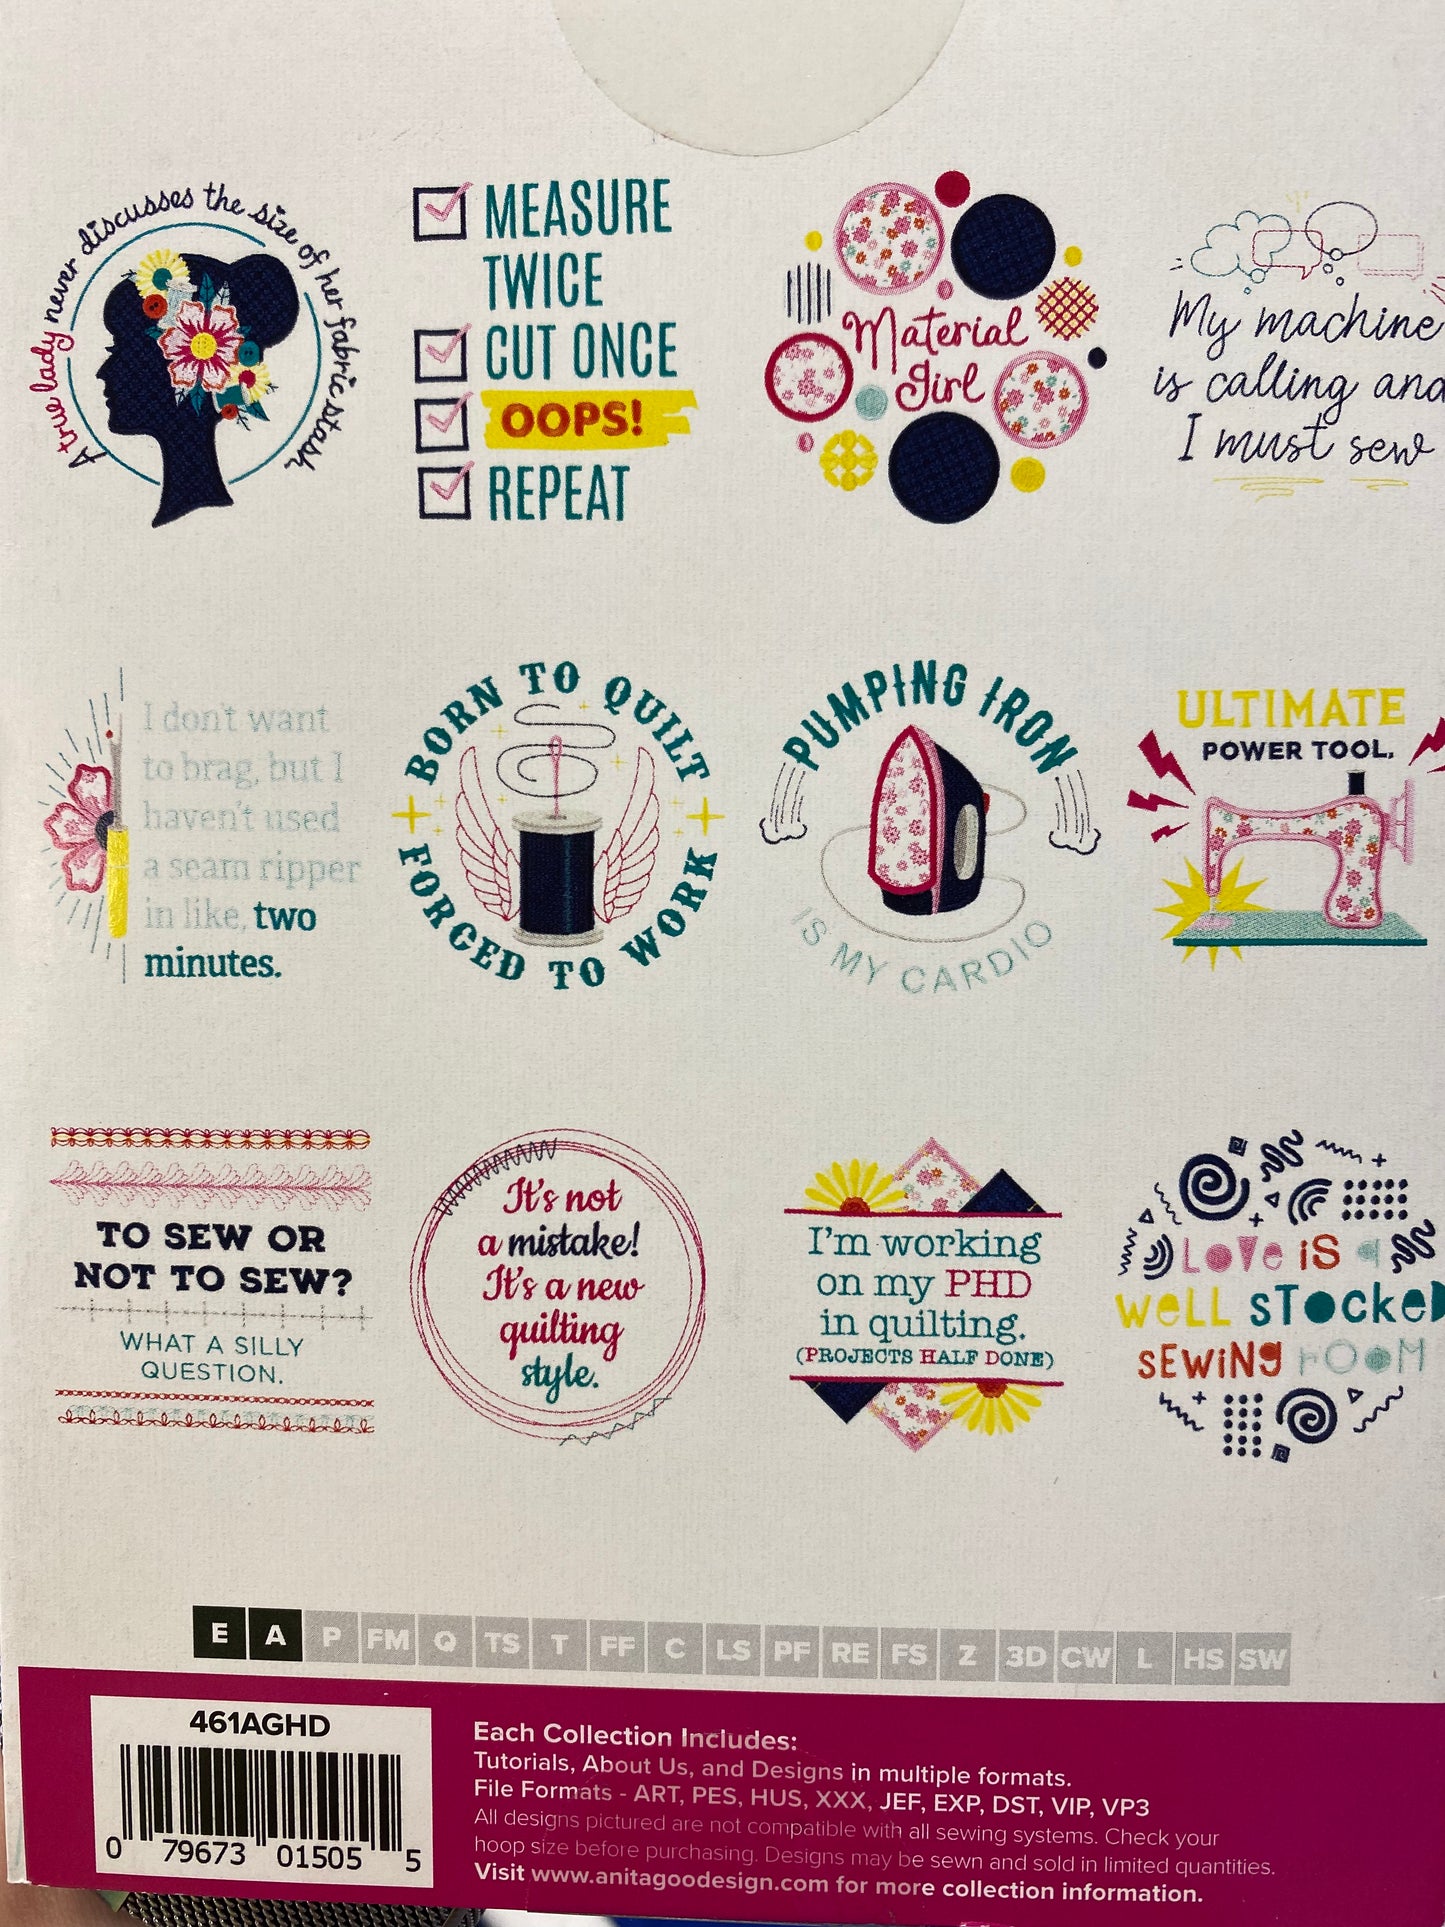 A true lady never discusses the size of her fabric stash
MEASURE
TWICE
CUT ONCE
OOPS!
REPEAT
Material
Girl
My machine
is calling and
I must sew
I don't want
to brag, but I
haven't used
a seam ripper
in like, two
minutes.
BORN TO QUILT
FORCED TO WORK
PUMPING IRON
IS MY CARDIO
ULTIMATE
POWER TOOL.
TO SEW OR
NOT TO SEW?
WHAT A SILLY
QUESTION.
It's not
a mistake!
It's a new
quilting
style.
I'm working
on my PHD
in quilting.
(PROJECTS HALF DONE)
LOVE iS a
WeLL STocKeD
SEWiNg rOOM
E A P FM Q TS T FF C LS PF RE FS Z 3D CW L HS SW
461AGHD
0 79673 01505 5
Each Collection Includes:
Tutorials, About Us, and Designs in multiple formats.
File Formats - ART, PES, HUS, XXX, JEF, EXP, DST, VIP, VP3
All designs pictured are not compatible with all sewing systems. Check your
hoop size before purchasing. Designs may be sewn and sold in limited quantities.
Visit www.anitagoodesign.com for more collection information.